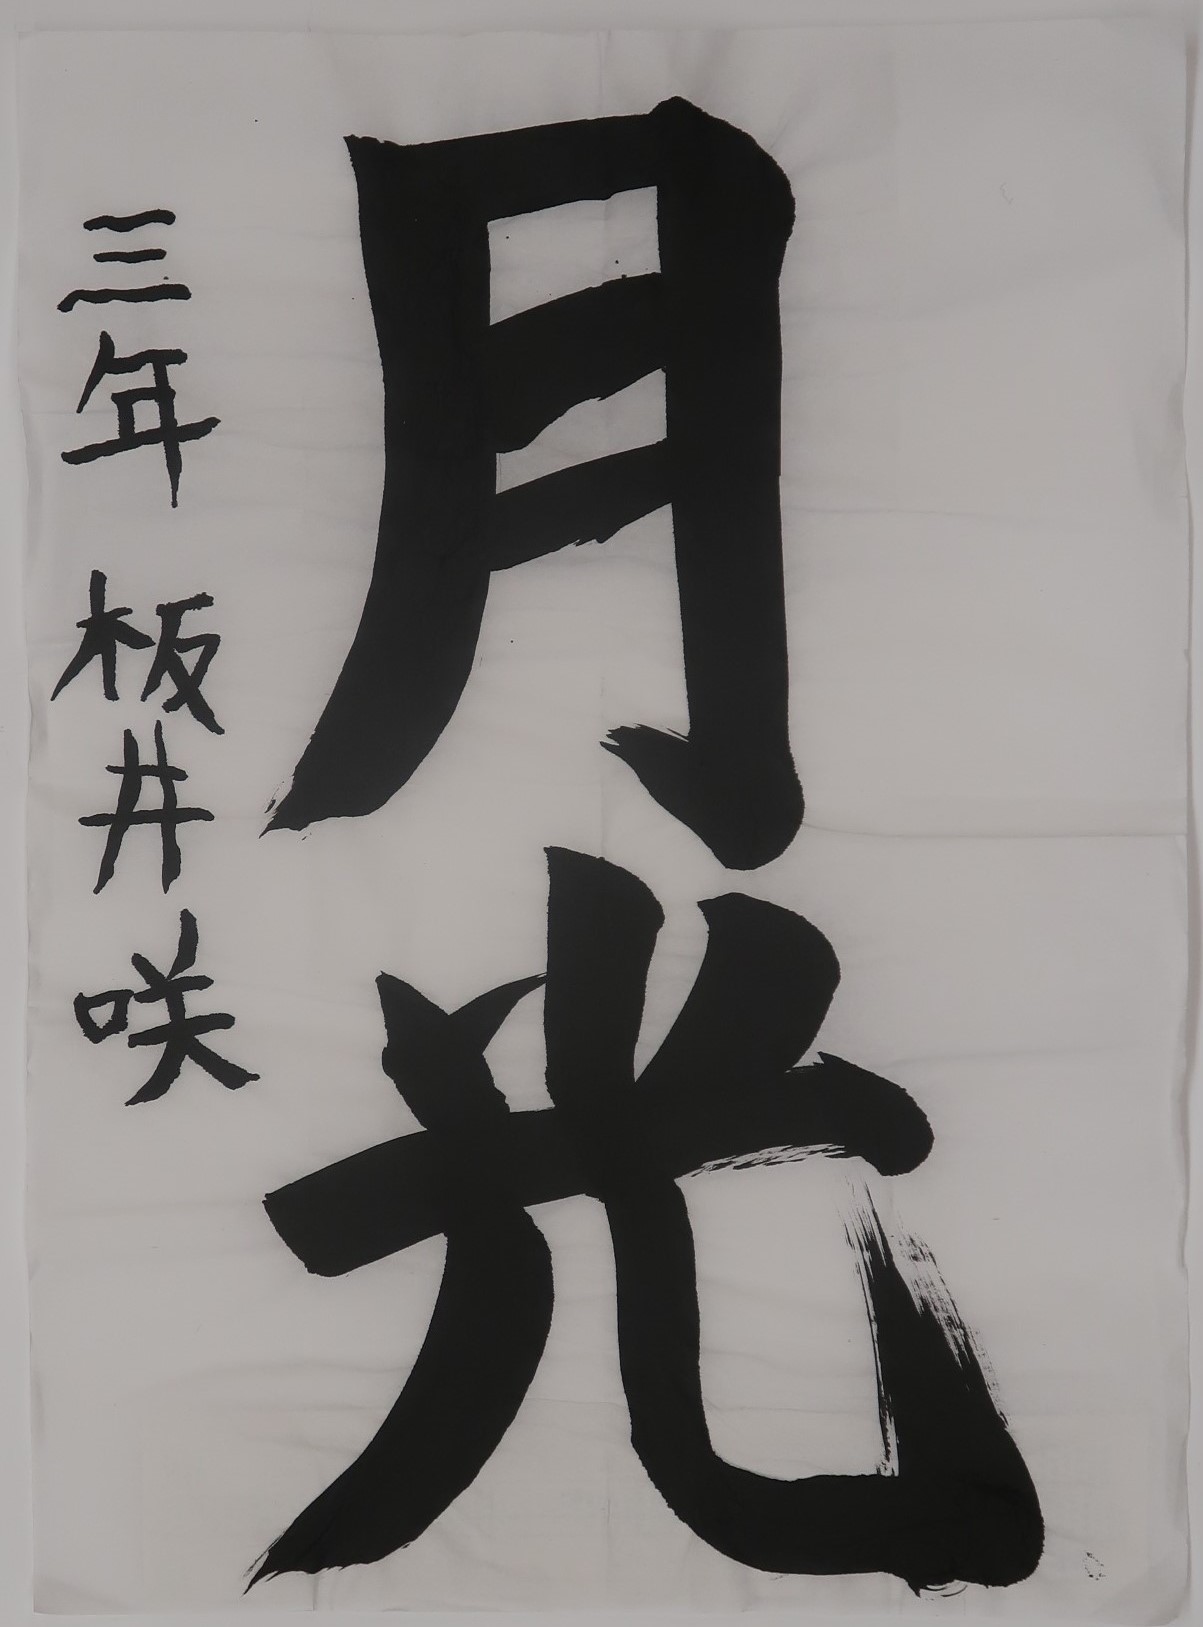 月光
三年 板井咲